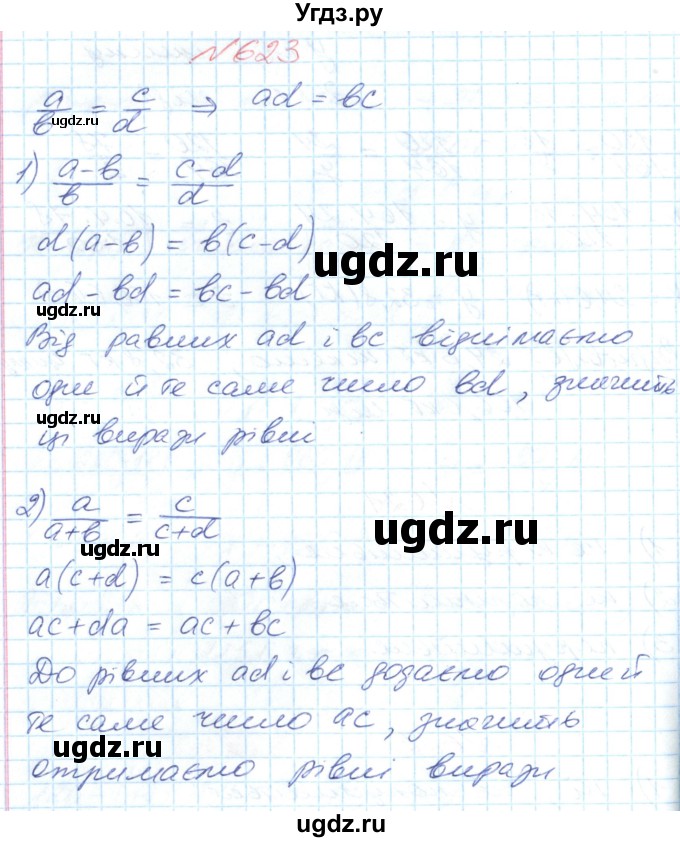 Угдз.ру
№623
a/в = c/d ⇒ ad = вc
ugdz.ru
1) (a-в)/в = (c-d)/d
d(a-в) = в(c-d)
ugdz.ru
ad - вd = вc - вd
ugdz.ru
Від равних ad і вc віднімаємо
одне й те саме число вd, значить
ugdz.ru
ці вирази рівні
2) a/(a+в) = c/(c+d)
ugdz.ru
ugdz.ru
a(c+d) = c(a+в)
ac+da = ac+вc
До рівних ad і вc додаємо одне й
те саме число ac, значить
ugdz.ru
отримаємо рівні вирази
ugdz.ru